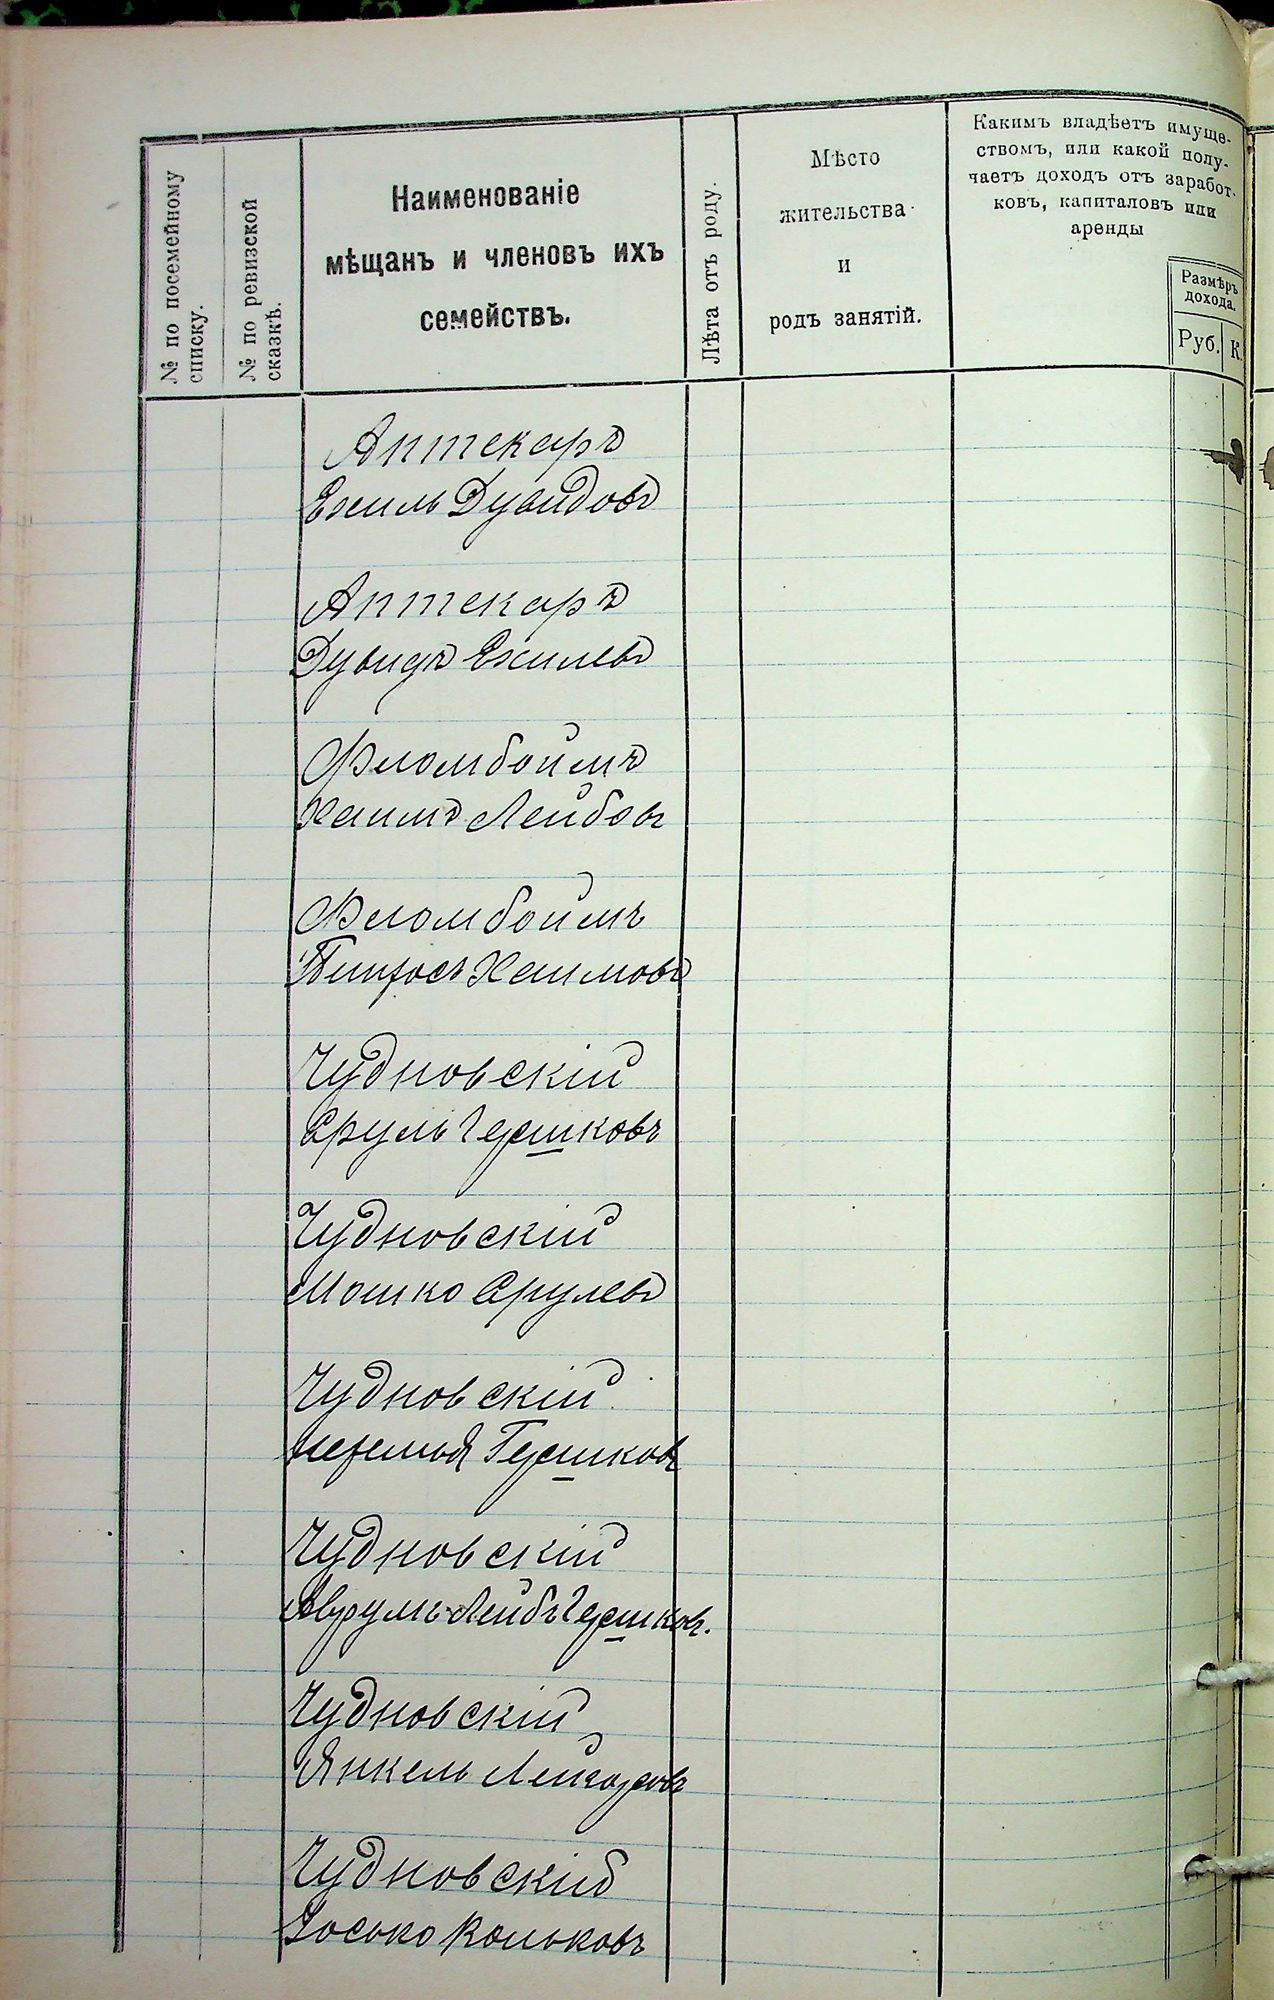 № по посемейному
списку.
№ по ревизской
сказкѣ.
Наименованіе
мѣщанъ и членовъ ихъ
семействъ.
Лѣта отъ роду.
Мѣсто
жительства
и
родъ занятій.
Какимъ владѣетъ имуще-
ствомъ, или какой полу-
чаетъ доходъ отъ заработ-
ковъ, капиталовъ или
аренды
Размѣръ
дохода.
Руб.
К.
Аптекаръ
Ехиль Дувидовъ
Аптекаръ
Дувидъ Ехилевъ
Фломбоймъ
Хаимъ Лейбовъ
Фломбоймъ
Пинхосъ Хаимовъ
Чудновскій
Сруль Гершковъ
Чудновскій
Мошко Срулевъ
Чудновскій
Нехемья Гершковъ
Чудновскій
Аврумъ Лейбъ Гершковъ.
Чудновскій
Янкель Лейзоровъ
Чудновскій
Іосько